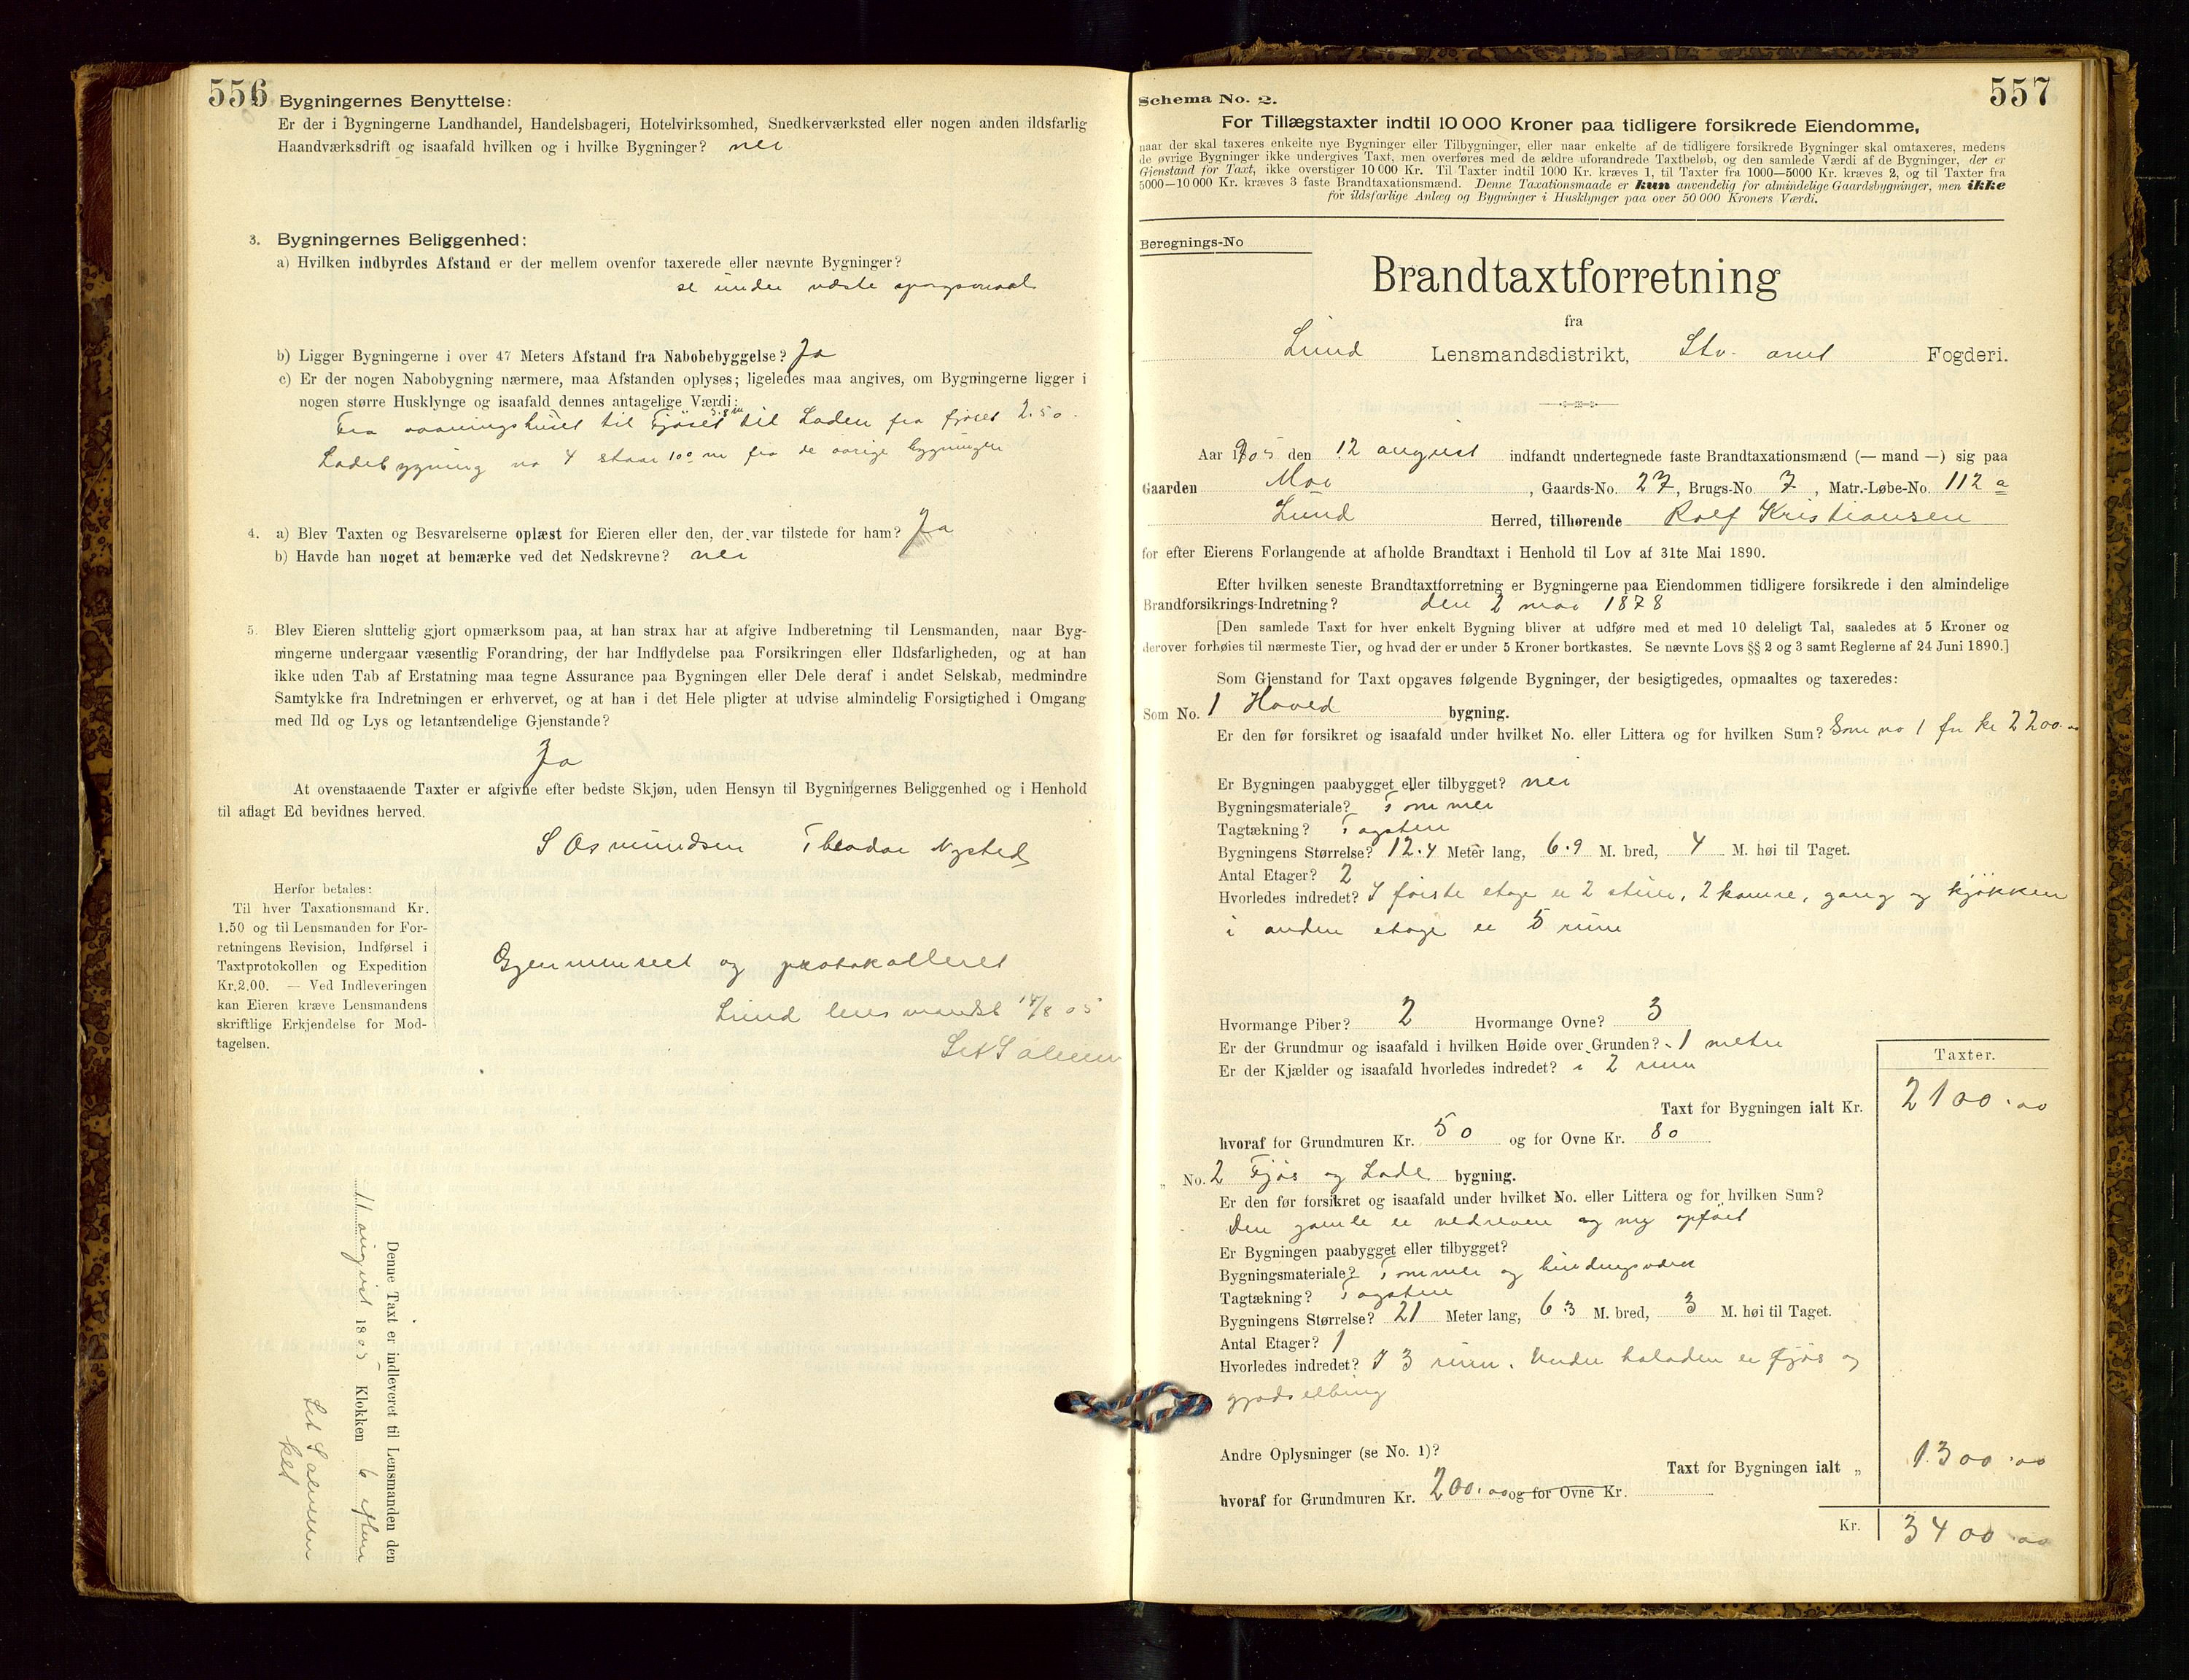 556
Bygningernes Benyttelse:
Er der i Bygningerne Landhandel, Handelsbageri, Hotelvirksomhed, Snedkerværksted eller nogen anden ildsfarlig
Haandværksdrift og isaafald hvilken og i hvilke Bygninger? nei
3. Bygningernes Beliggenhed:
a) Hvilken indbyrdes Afstand er der mellem ovenfor taxerede eller nævnte Bygninger?
se under næste spørgsmaal
b) Ligger Bygningerne i over 47 Meters Afstand fra Nabobebyggelse? Ja
c) Er der nogen Nabobygning nærmere, maa Afstanden oplyses; ligeledes maa angives, om Bygningerne ligger i
nogen større Husklynge og isaafald dennes antagelige Værdi:
Fra vaaningshuset til Fjøset til Laden fra fjøset 2.50
Ladebygning no 4 staar 100 m fra de øvrige bygninger
4. a) Blev Taxten og Besvarelserne oplæst for Eieren eller den, der var tilstede for ham? Ja
b) Havde han noget at bemærke ved det Nedskrevne? nei
5. Blev Eieren sluttelig gjort opmærksom paa, at han strax har at afgive Indberetning til Lensmanden, naar Byg-
ningerne undergaar væsentlig Forandring, der har Indflydelse paa Forsikringen eller Ildsfarligheden, og at han
ikke uden Tab af Erstatning maa tegne Assurance paa Bygningen eller Dele deraf i andet Selskab, medmindre
Samtykke fra Indretningen er erhvervet, og at han i det Hele pligter at udvise almindelig Forsigtighed i Omgang
med Ild og Lys og letantændelige Gjenstande?
Ja
At ovenstaaende Taxter er afgivne efter bedste Skjøn, uden Hensyn til Bygningernes Beliggenhed og i Henhold
til aflagt Ed bevidnes herved.
S Osmundsen Theodor Nysted
Herfor betales:
Til hver Taxationsmand Kr.
1.50 og til Lensmanden for For-
retningens Revision, Indførsel i
Taxtprotokollen og Expedition
Kr. 2.00. — Ved Indleveringen
kan Eieren kræve Lensmandens
skriftlige Erkjendelse for Mod-
tagelsen.
Gjennemseet og protokolleret
Lund lensmandsk 14/8 05
Denne Taxt er indleveret til Lensmanden den
11 august 1805 Klokken 6 efterm
557
Schema No. 2.
For Tillægstaxter indtil 10 000 Kroner paa tidligere forsikrede Eiendomme,
naar der skal taxeres enkelte nye Bygninger eller Tilbygninger, eller naar enkelte af de tidligere forsikrede Bygninger skal omtaxeres, medens
de øvrige Bygninger ikke undergives Taxt, men overføres med de ældre uforandrede Taxtbeløb, og den samlede Værdi af de Bygninger, der er
Gjenstand for Taxt, ikke overstiger 10 000 Kr. Til Taxter indtil 1000 Kr. kræves 1, til Taxter fra 1000—5000 Kr. kræves 2, og til Taxter fra
5000—10 000 Kr. kræves 3 faste Brandtaxationsmænd. Denne Taxationsmaade er kun anvendelig for almindelige Gaardsbygninger, men ikke
for ildsfarlige Anlæg og Bygninger i Husklynger paa over 50 000 Kroners Værdi.
Beregnings-No
Brandtaxtforretning
fra
Lund Lensmandsdistrikt, Stv. amt Fogderi.
Aar 1905 den 12 august indfandt undertegnede faste Brandtaxationsmænd (— mand —) sig paa
Gaarden Moi, Gaards-No. 27, Brugs-No. 7, Matr.-Løbe-No. 112 a
Lund Herred, tilhørende Rolf Kristiansen
for efter Eierens Forlangende at afholde Brandtaxt i Henhold til Lov af 31te Mai 1890.
Efter hvilken seneste Brandtaxtforretning er Bygningerne paa Eiendommen tidligere forsikrede i den almindelige
Brandforsikrings-Indretning? den 2 mai 1878
[Den samlede Taxt for hver enkelt Bygning bliver at udføre med et med 10 deleligt Tal, saaledes at 5 Kroner og
derover forhøies til nærmeste Tier, og hvad der er under 5 Kroner bortkastes. Se nævnte Lovs §§ 2 og 3 samt Reglerne af 24 Juni 1890.]
Som Gjenstand for Taxt opgaves følgende Bygninger, der besigtigedes, opmaaltes og taxeredes:
Som No. 1 Hoved bygning.
Er den før forsikret og isaafald under hvilket No. eller Littera og for hvilken Sum? Som no 1 for kr 2200.00
Er Bygningen paabygget eller tilbygget? nei
Bygningsmateriale? Tømmer
Tagtækning? Tagsten
Bygningens Størrelse? 12.4 Meter lang, 6.9 M. bred, 4 M. høi til Taget.
Antal Etager? 2
Hvorledes indredet? I første etage er 2 stuer, 2 kamre, gang og kjøkken
i anden etage er 5 rum
Hvormange Piber? 2 Hvormange Ovne? 3
Er der Grundmur og isaafald i hvilken Høide over Grunden? 1 meter
Er der Kjælder og isaafald hvorledes indredet? i 2 rum
Taxter.
Taxt for Bygningen ialt Kr. 2100.00
hvoraf for Grundmuren Kr. 50 og for Ovne Kr. 80
„ No. 2 Fjøs og Lade bygning.
Er den før forsikret og isaafald under hvilket No. eller Littera og for hvilken Sum?
Den gamle er nedreven og ny opført
Er Bygningen paabygget eller tilbygget?
Bygningsmateriale? Tømmer og bindingsværk
Tagtækning? Tagsten
Bygningens Størrelse? 21 Meter lang, 6.3 M. bred, 3 M. høi til Taget.
Antal Etager? 1
Hvorledes indredet? I 3 rum. Under høladen er fjøs og
gjødselbing
Andre Oplysninger (se No. 1)?
Taxt for Bygningen ialt „ 1300.00
hvoraf for Grundmuren Kr. 200.00 og for Ovne Kr.
Kr. 3400.00